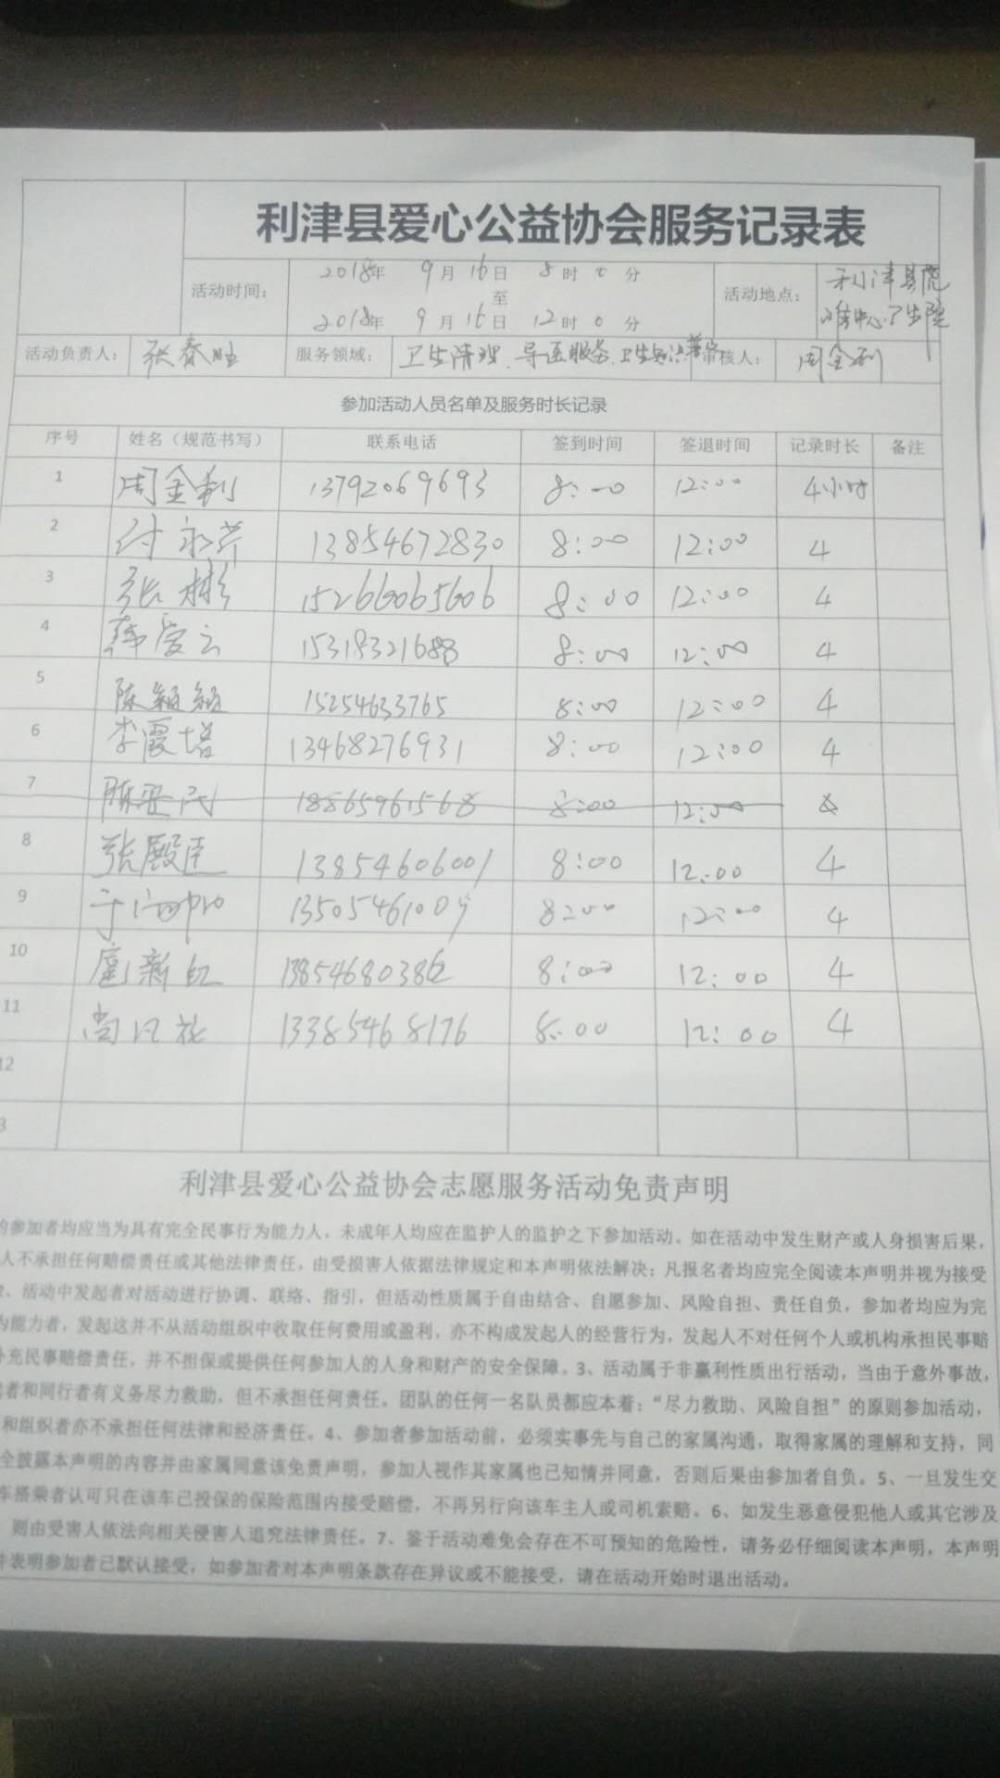 利津县爱心公益协会服务记录表
活动时间： 2018年 9月16日 8时0分
至
2018年 9月16日 12时0分
活动地点： 利津县
中心卫生院
活动负责人： 张春 服务领域： 卫生清理、导医服务、卫生知识 审核人： 周金利
参加活动人员名单及服务时长记录
序号 姓名（规范书写） 联系电话 签到时间 签退时间 记录时长 备注
1 周金利 13792069693 8:00 12:00 4小时
2 付永芹 13854672830 8:00 12:00 4
3 张彬 15266065606 8:00 12:00 4
4 韩爱云 15319321688 8:00 12:00 4
5 陈颖颖 15254633765 8:00 12:00 4
6 李霞 13468276931 8:00 12:00 4
7 陈 民 18865961568 8:00 12:00
8 张殿臣 13854606001 8:00 12:00 4
9 于 13505461009 8:00 12:00 4
10 扈新红 8:00 12:00 4
11 尚 花 13385468176 8:00 12:00 4
12
3
利津县爱心公益协会志愿服务活动免责声明
的参加者均应当为具有完全民事行为能力人，未成年人均应在监护人的监护之下参加活动。如在活动中发生财产或人身损害后果，
人不承担任何赔偿责任或其他法律责任，由受损害人依据法律规定和本声明依法解决；凡报名者均应完全阅读本声明并视为接受
2、活动中发起者对活动进行协调、联络、指引，但活动性质属于自由结合、自愿参加、风险自担、责任自负，参加者均应为完
为能力者，发起这并不从活动组织中收取任何费用或盈利，亦不构成发起人的经营行为，发起人不对任何个人或机构承担民事赔
补充民事赔偿责任，并不担保或提供任何参加人的人身和财产的安全保障。3、活动属于非赢利性质出行活动，当由于意外事故，
者和同行者有义务尽力救助，但不承担任何责任。团队的任何一名队员都应本着：“尽力救助、风险自担”的原则参加活动，
和组织者亦不承担任何法律和经济责任。4、参加者参加活动前，必须实事先与自己的家属沟通，取得家属的理解和支持，同
全披露本声明的内容并由家属同意该免责声明，参加人视作其家属也已知情并同意，否则后果由参加者自负。5、一旦发生交
车搭乘者认可只在该车已投保的保险范围内接受赔偿，不再另行向该车主人或司机索赔。6、如发生恶意侵犯他人或其它涉及
则由受害人依法向相关侵害人追究法律责任。7、鉴于活动难免会存在不可预知的危险性，请务必仔细阅读本声明，本声明
并表明参加者已默认接受，如参加者对本声明条款存在异议或不能接受，请在活动开始时退出活动。